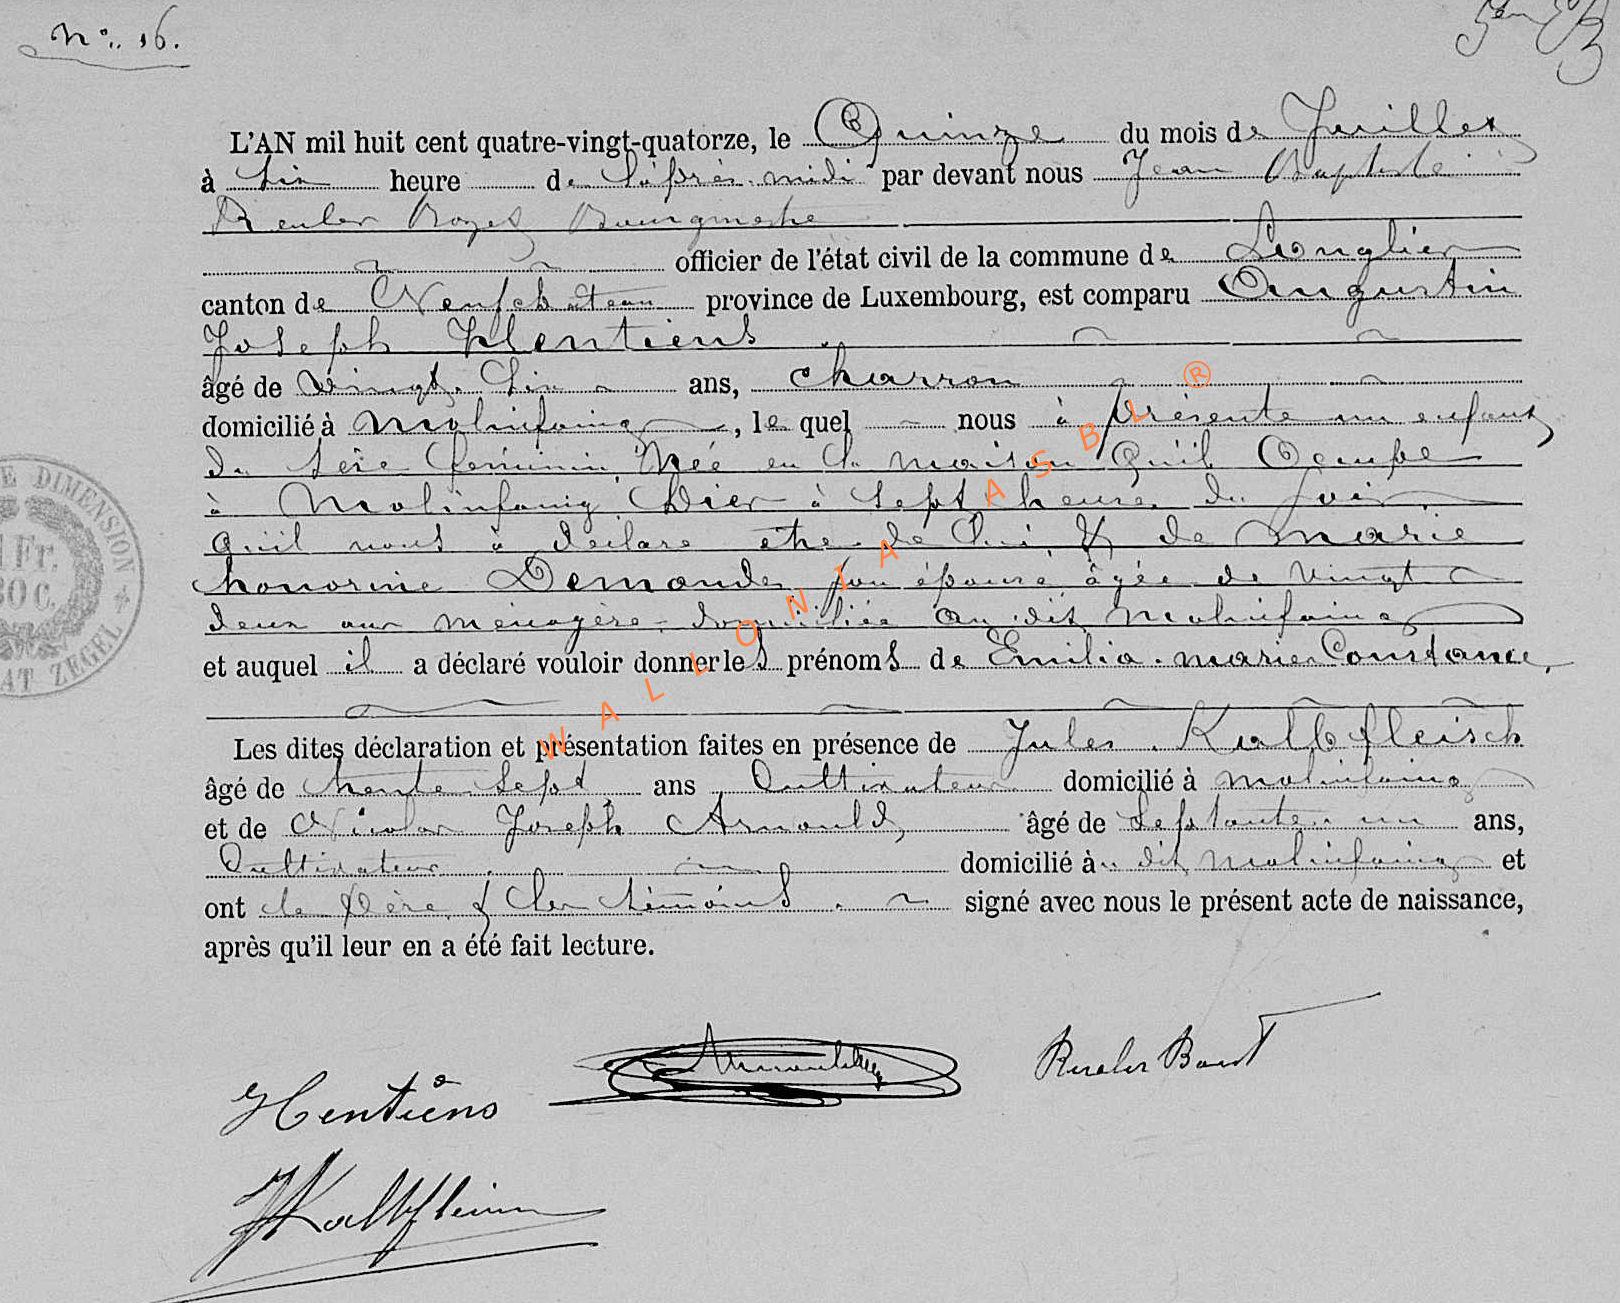 N° 16.
L'AN mil huit cent quatre-vingt-quatorze, le Quinze du mois de Juillet
à six heure de l'après-midi par devant nous Jean Baptiste
Reuler Bourgmestre
officier de l'état civil de la commune de Longlier
canton de Neufchâteau province de Luxembourg, est comparu Augustin
Joseph Hentiens
âgé de vingt-six ans, charron
domicilié à Molinfaing, le quel nous à présenté un enfant
du sèxe féminin Née en la maison qu'il Occupe
à Molinfaing hier à sept heures du soir
quil nous à déclaré être de lui & de Marie
honorine Demande son épouse âgée de vingt
deux ans ménagère domiciliée au dit Molinfaing
et auquel il a déclaré vouloir donner les prénoms de Emilia-marie-Constance,
Les dites déclaration et présentation faites en présence de Jules Kalbfleisch
âgé de trente sept ans Cultivateur domicilié à Molinfaing
et de Nicolas Joseph Arnould, âgé de septante-un ans,
Cultivateur domicilié au dit Molinfaing et
ont le Père & les témoins signé avec nous le présent acte de naissance,
après qu'il leur en a été fait lecture.
Hentiens
Arnould
Reuler
JKalbfleisch
E DIMENSION
1 Fr.
30 C.
AT ZEGEL
WALLONIA ASBL ®